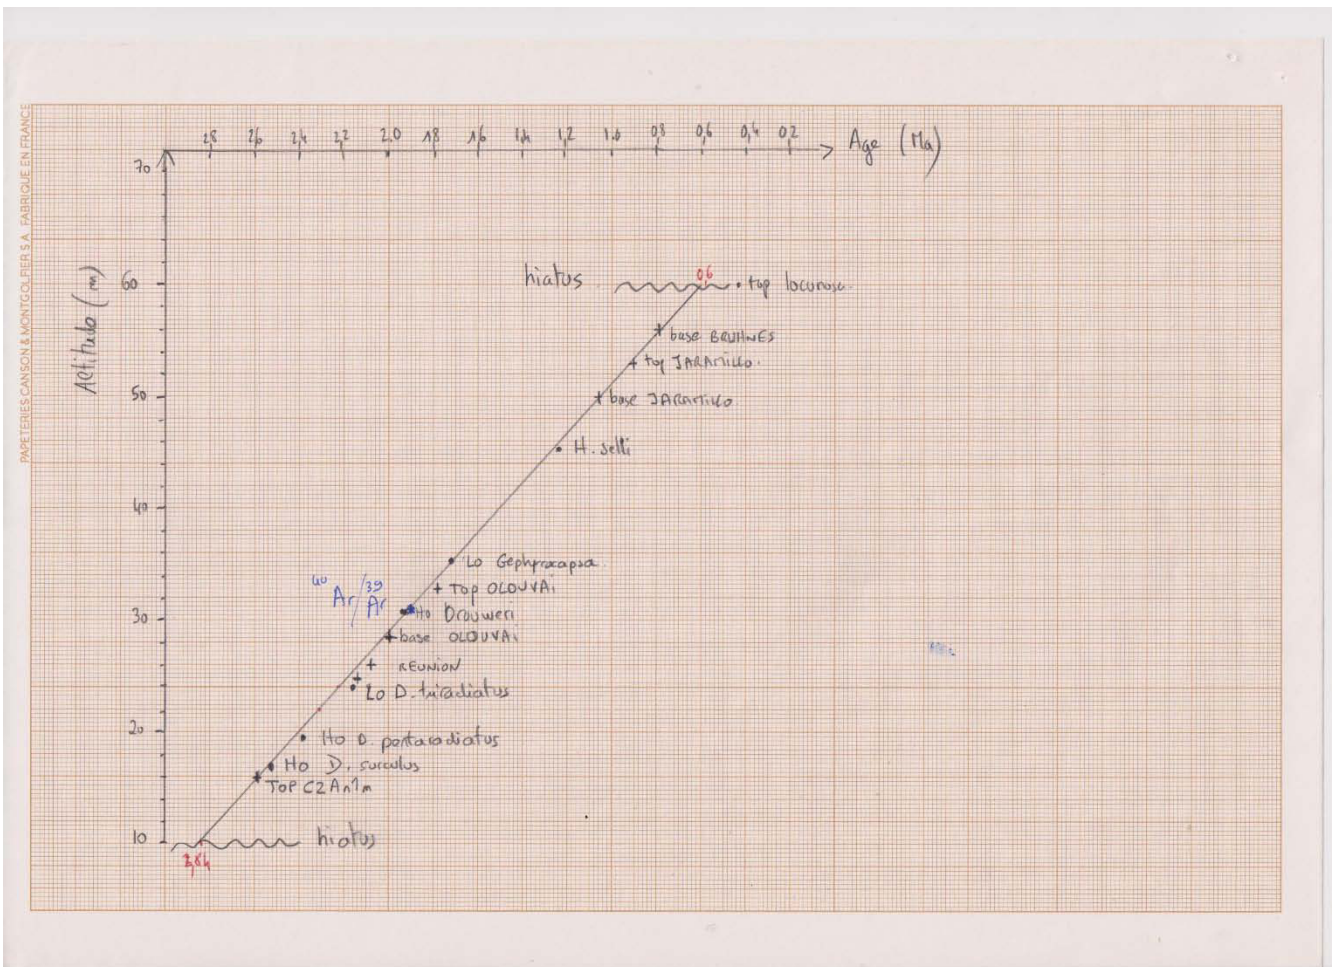 PAPETERIES CANSON & MONTGOLFIER S.A. FABRIQUE EN FRANCE
2,8 2,6 2,4 2,2 2,0 1,8 1,6 1,4 1,2 1,0 0,8 0,6 0,4 0,2 Age (Ma)
70
Altitude (m)
60
hiatus 0,6 top locunosa
base BRUHNES
top JARAMILLO
50
base JARAMILLO
H. selli
40
Lo Gephyrocapsa
top OLOUVAi
40Ar/39Ar
30
Ho Brouweri
base OLOUVAi
REUNION
Lo D. triradiatus
20
Ho D. pentaradiatus
Ho D. surculus
TOP C2An1n
10
hiatus
2,84